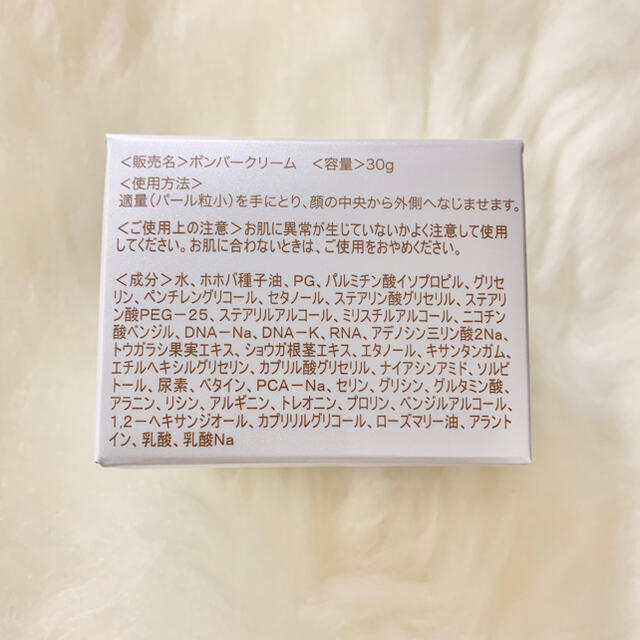 ＜販売名＞ボンバークリーム　＜容量＞30g
＜使用方法＞
適量（パール粒小）を手にとり、顔の中央から外側へなじませます。
＜ご使用上の注意＞お肌に異常が生じていないかよく注意して使用
してください。お肌に合わないときは、ご使用をおやめください。
＜成分＞水、ホホバ種子油、PG、パルミチン酸イソプロピル、グリセ
リン、ペンチレングリコール、セタノール、ステアリン酸グリセリル、ステアリ
ン酸PEG－25、ステアリルアルコール、ミリスチルアルコール、ニコチン
酸ベンジル、DNA－Na、DNA－K、RNA、アデノシン三リン酸2Na、
トウガラシ果実エキス、ショウガ根茎エキス、エタノール、キサンタンガム、
エチルヘキシルグリセリン、カプリル酸グリセリル、ナイアシンアミド、ソルビ
トール、尿素、ベタイン、PCA－Na、セリン、グリシン、グルタミン酸、
アラニン、リシン、アルギニン、トレオニン、プロリン、ベンジルアルコール、
1,2－ヘキサンジオール、カプリリルグリコール、ローズマリー油、アラント
イン、乳酸、乳酸Na